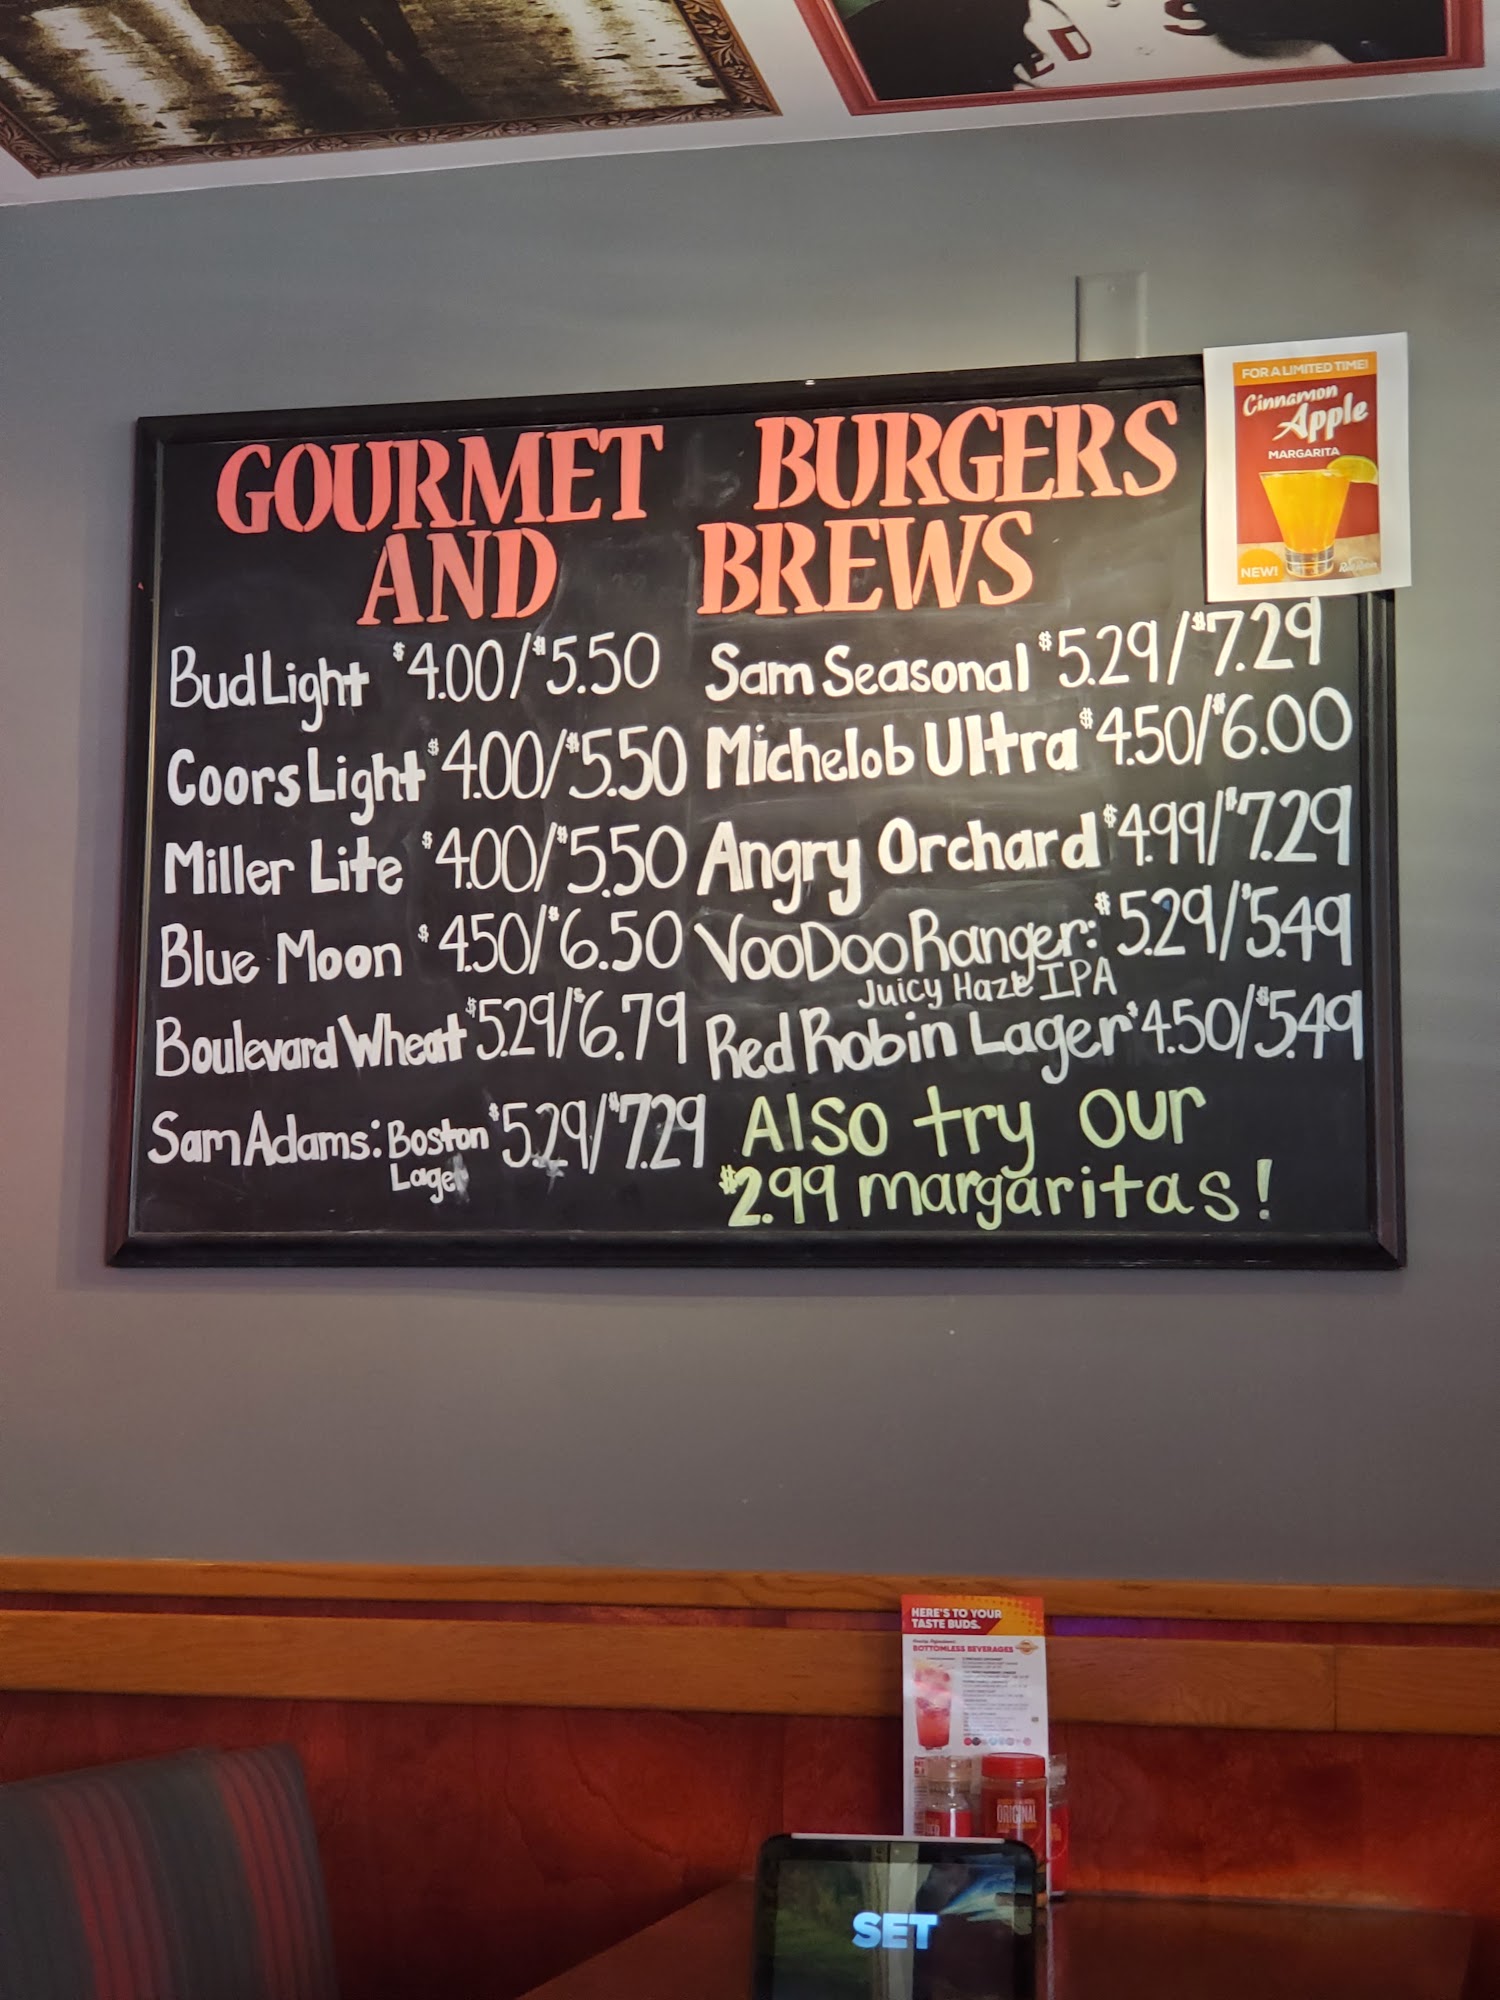 ED S
FOR A LIMITED TIME!
Cinnamon
Apple
MARGARITA
NEW!
GOURMET BURGERS
AND BREWS
Bud Light $4.00/$5.50
Coors Light $4.00/$5.50
Miller Lite $4.00/$5.50
Blue Moon $4.50/$6.50
Boulevard Wheat $5.29/$6.79
Sam Adams: Boston $5.29/$7.29
Lager
Sam Seasonal $5.29/$7.29
Michelob Ultra $4.50/$6.00
Angry Orchard $4.99/$7.29
VooDoo Ranger: $5.29/$5.49
Juicy Haze IPA
Red Robin Lager $4.50/$5.49
Also try our
$2.99 margaritas!
HERE'S TO YOUR
TASTE BUDS.
BOTTOMLESS BEVERAGES
ORIGINAL
SET